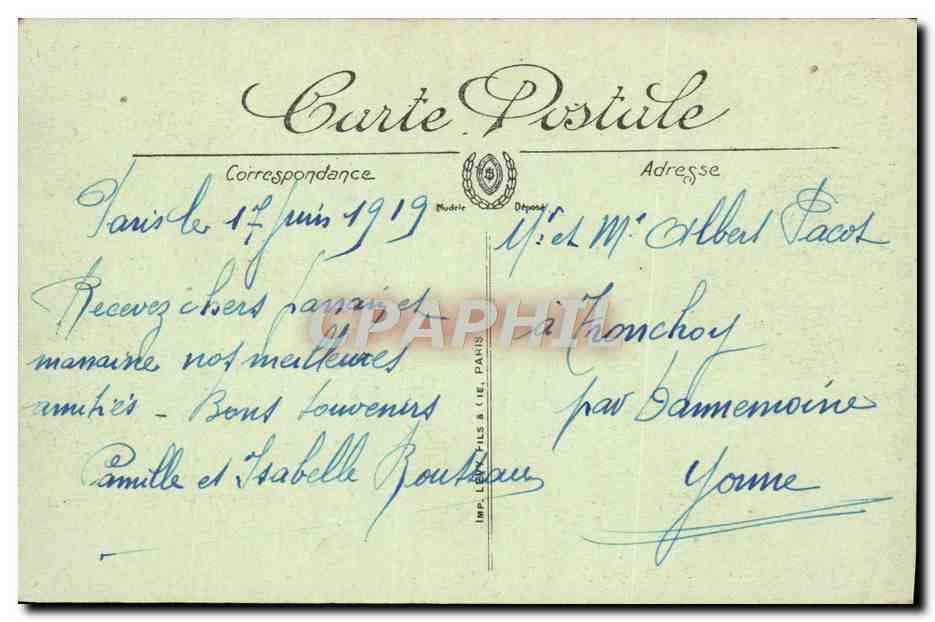 Carte Postale
Correspondance
Adresse
Modèle Déposé
Paris le 17 juin 1919
Recevez chers parrain et
marraine nos meilleures
amitiés - Bons souvenirs
Camille et Isabelle
Mr et Me Albert Pacot
à Tronchoy
par Dannemoine
Yonne
IMP. LEVY FILS & CIE, PARIS
CPAPHIL